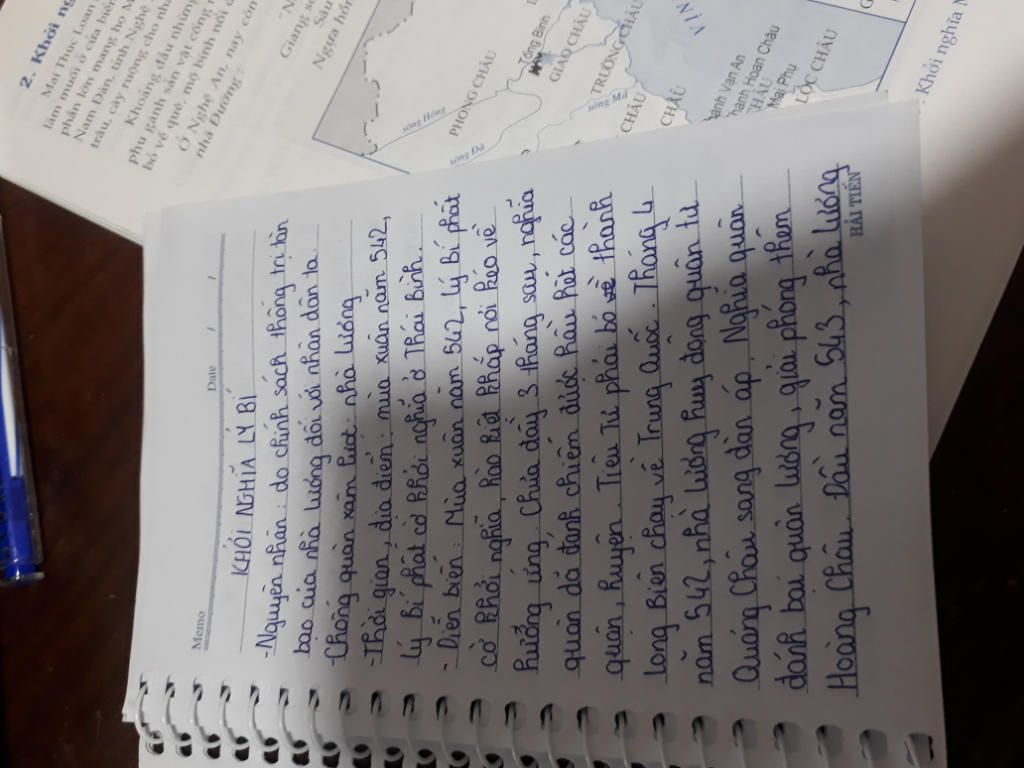 Memo Date / /
KHỞI NGHĨA LÝ BÍ
-Nguyên nhân : do chính sách thống trị tàn
bạo của nhà Lương đối với nhân dân ta.
-Chống quân xâm lược : nhà Lương
-Thời gian, địa điểm : mùa xuân năm 542,
Lý Bí phất cờ khởi nghĩa ở Thái Bình.
- Diễn biến : Mùa xuân năm 542, Lý Bí phất
cờ khởi nghĩa, hào kiệt khắp nơi kéo về
hưởng ứng. Chưa đầy 3 tháng sau, nghĩa
quân đã đánh chiếm được hầu hết các
quận, huyện. Tiêu Tư phải bỏ về thành
Long Biên chạy về Trung Quốc. Tháng 4
năm 542, nhà Lương huy động quân từ
Quảng Châu sang đàn áp. Nghĩa quân
đánh bại quân Lương, giải phóng thêm
Hoàng Châu. Đầu năm 543, nhà Lương
HẢI TIẾN
2. Khởi ng
Mai Thúc Loan
làm muối ở cửa biển
phần lớn mang họ M
Nam Đàn, tỉnh Nghệ
trâu, cày ruộng cho nhà
Khoảng đầu những
phu gánh sản vật cống n
bỏ về quê, mộ binh nổi d
Ở Nghệ An, nay còn
nhà Đường :
Giang sơ
Sau
Ngựa hồn
sông Hồng
PHONG CHÂU
sông Đà
Tống Bình
GIAO CHÂU
TRƯỜNG CHÂU
sông Mã
CHÂU
CHÂU
VỊN
hành Vạn An
hành Hoan Châu
CHÂU
Mai Phụ
LỘC CHÂU
Khởi nghĩa M